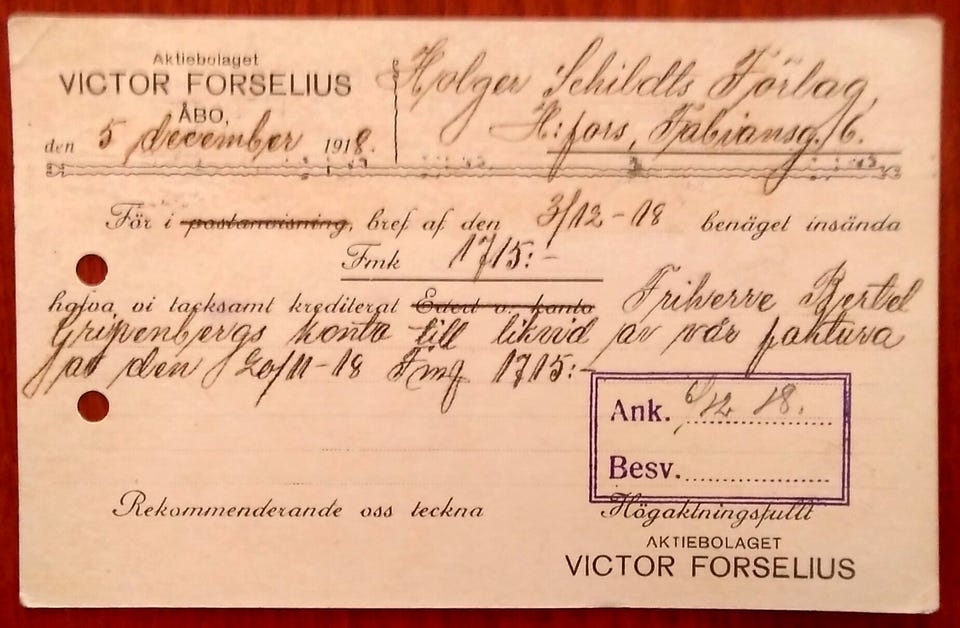 Aktiebolaget
VICTOR FORSELIUS
ÅBO,
den 5 december 1918.
Holger Schildts Förlag,
H:fors, Fabiansg. 6.
För i postanvisning, bref af den 3/12-18 benäget insända
Fmk 1715:-
hafva vi tacksamt krediterat Edert v. konto Friherre Bertel
Gripenbergs konto till likvid av vår faktura
av den 20/11-18 Fmg 1715:-
Ank. 6/12 18.
Besv.
Rekommenderande oss teckna
Högaktningsfullt
AKTIEBOLAGET
VICTOR FORSELIUS